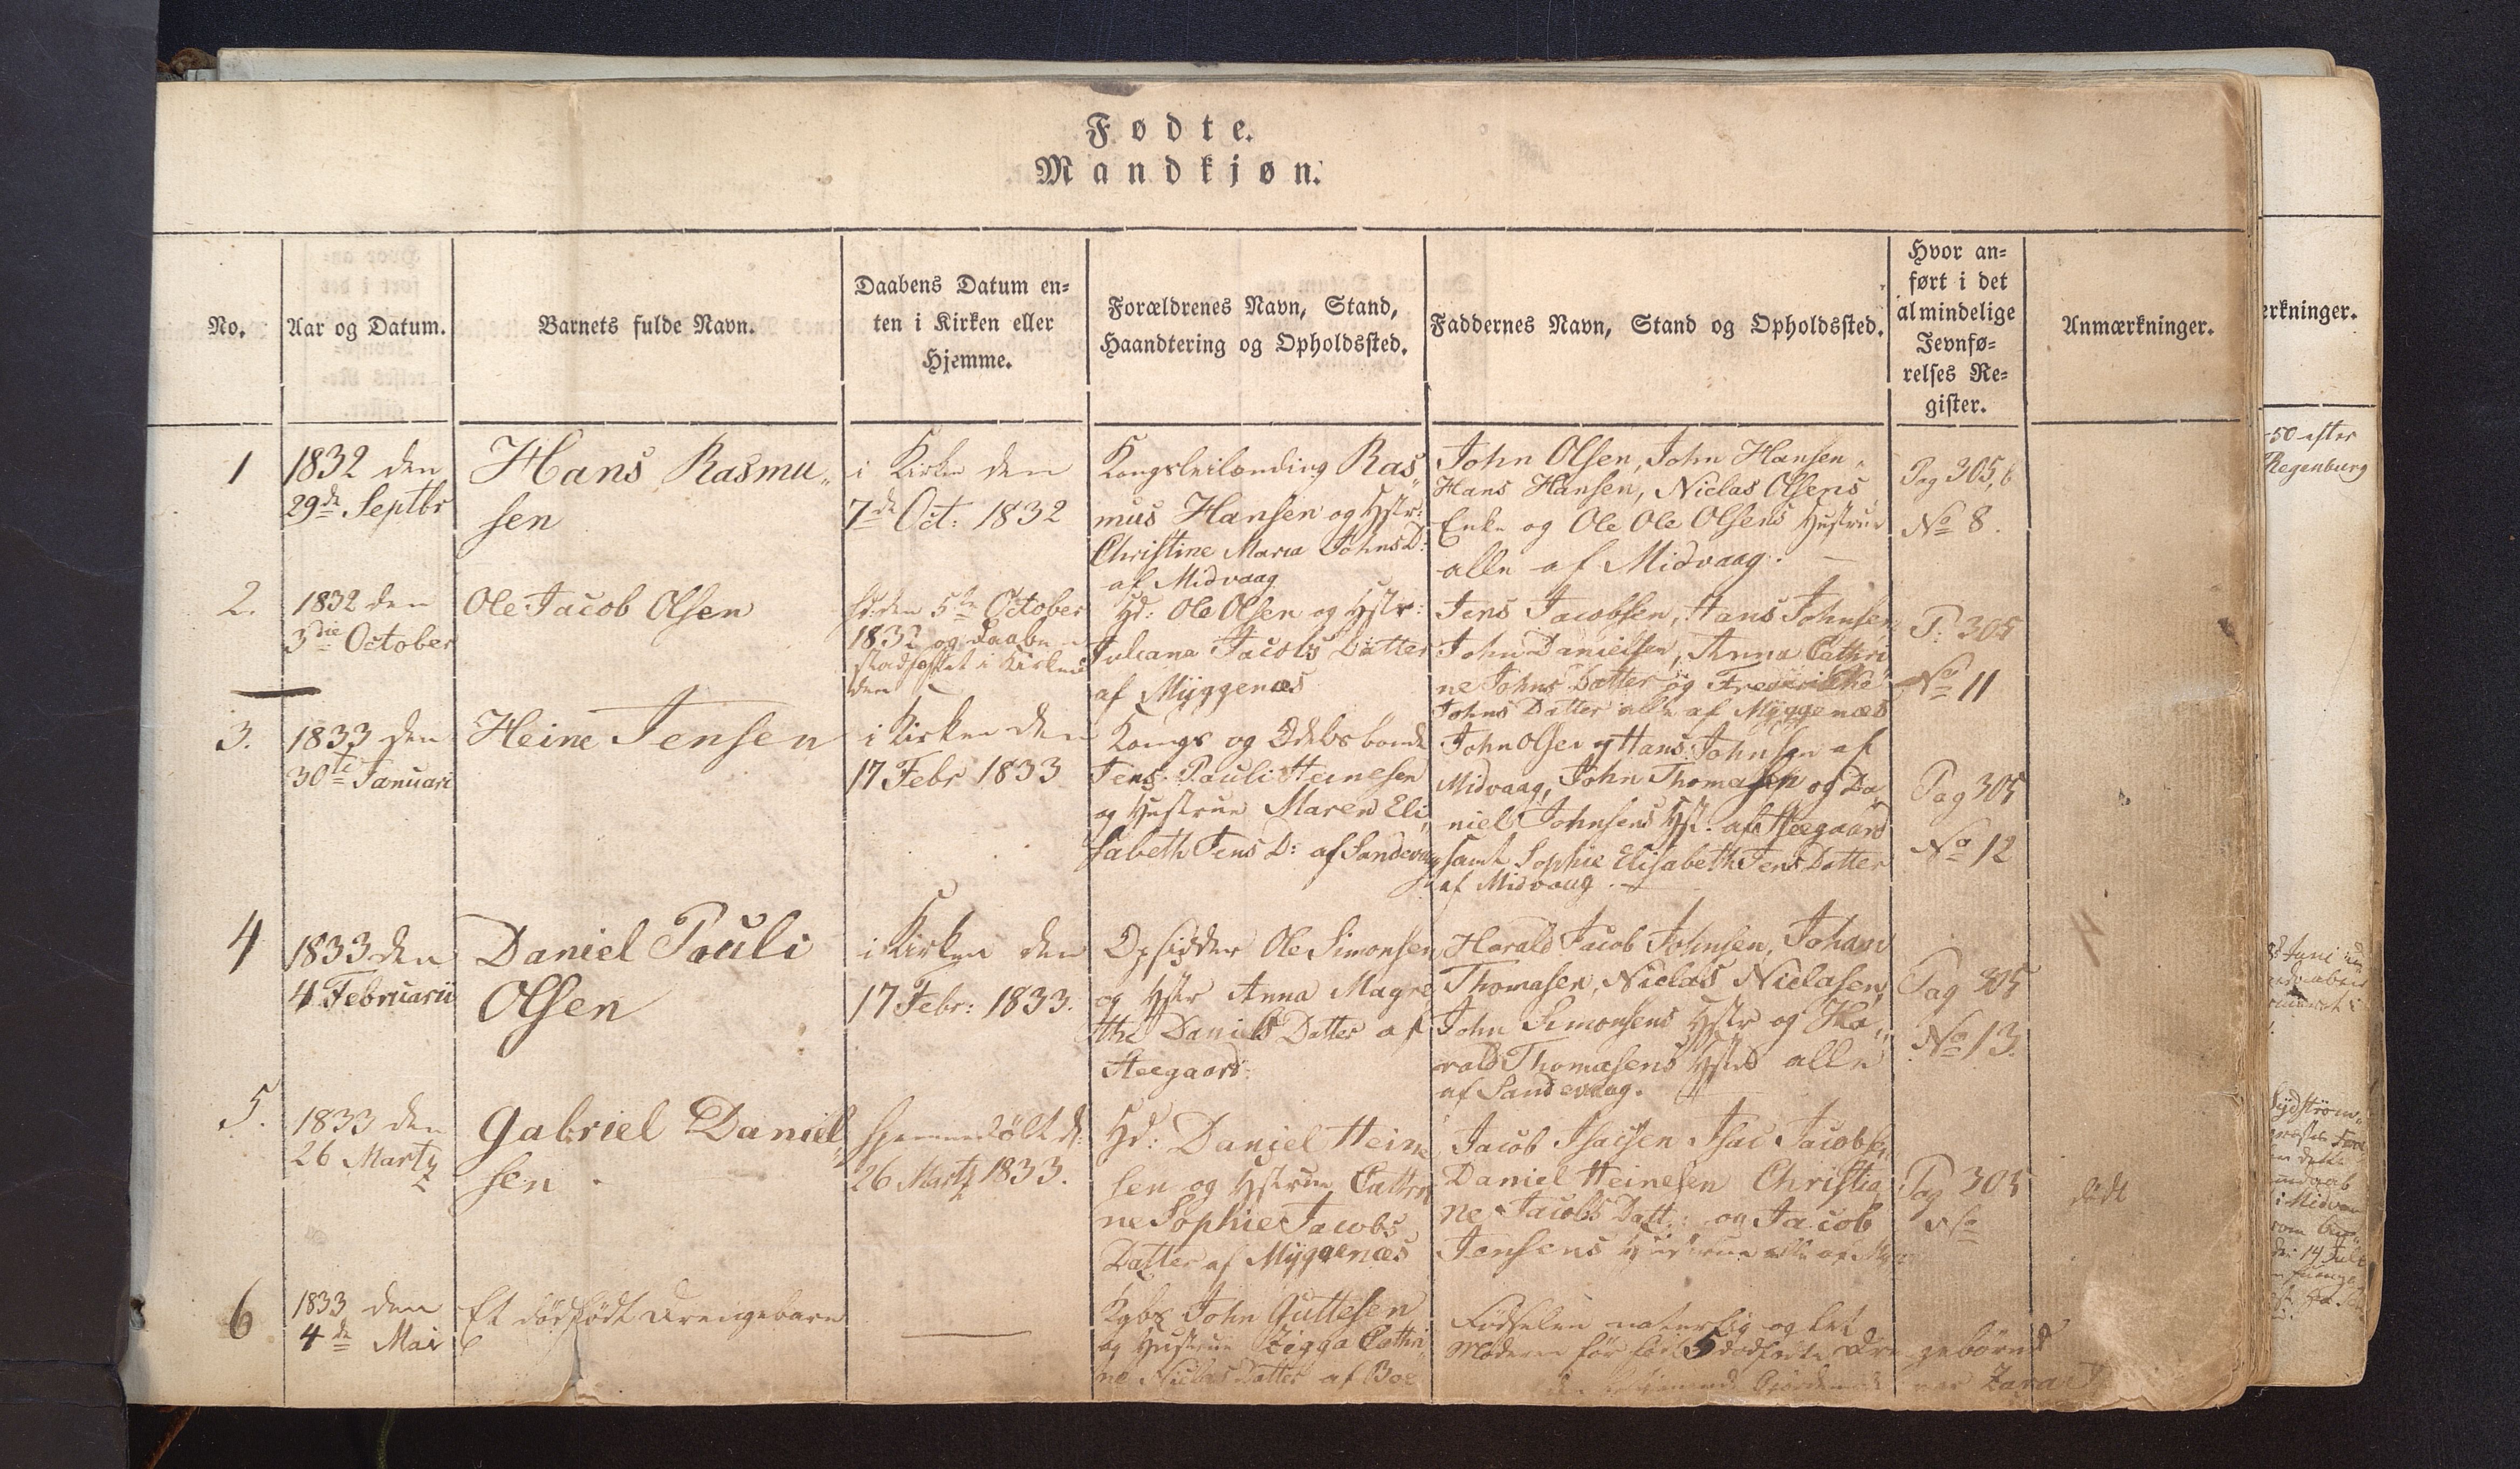 Fødte.
Mandkjøn.
No.
Aar og Datum.
Barnets fulde Navn.
Daabens Datum en=
ten i Kirken eller
Hjemme.
Forældrenes Navn, Stand,
Haandtering og Opholdssted.
Faddernes Navn, Stand og Opholdssted.
Hvor an=
ført i det
almindelige
Jevnfø=
relses Re=
gister.
Anmærkninger.
1
1832 den
29de Septbr
Hans Rasmu„
sen
i Kirken den
7de Oct: 1832
Kongsleilending Ras„
mus Hansen og Hstr:
Christine Maria Johns D:
af Midvaag
John Olsen, John Hansen„
Hans Hansen, Niclas Olsens
Enke og Ole Ole Olsens Hustrue
alle af Midvaag. —
Pag 305, b
No 8.
2.
1832 den
3die October
Ole Jacob Olsen
den 5te October
1832 og Daaben
stadfæstet i Kirken
den
Hd: Ole Olsen og Hstr:
Juliana Jacobs Datter
af Myggenæs
Jens Jacobsen, Hans Johnsen
John Danielsen, Anna Cathri„
ne Johns Datter og Frederikke
Johns Datter alle af Myggenæs
P: 305
No 11
3.
1833 den
30te Januari
Heine Jensen
i Kirken den
17 Febr 1833
Kongs og Odelsbonde
Jens Pauli Heinesen
og Hustrue Maren Eli„
sabeth Jens D: af Sandevaag
John Olsen og Hans Johnsen af
Midvaag, John Thomasen og Da„
niel Johnsens Hst. af Steegaard
samt Sophie Elisabeth Jens Datter
af Midvaag. —
Pag 305
No 12
4
1833 den
4 Februarii
Daniel Pauli
Olsen
i Kirken den
17 Febr: 1833.
Opsidder Ole Simonsen
og Hstr Anna Magre
the Daniels Datter af
Steegaard.
Harald Jacob Johnsen, Johan
Thomasen, Niclas Niclasen,
John Simonsens Hstr og Ha„
rald Thomasens Hstr alle
af Sandevaag.
Pag 305
No 13.
5.
1833 den
26 Marty
Gabriel Daniel„
sen.
hjemmedøbt d:
26 Marty 1833.
Hd: Daniel Heine
sen og Hstrue Cathri
ne Sophie Jacobs
Datter af Myggenæs
Jacob Isacsen Isac Jacobsen
Daniel Heinesen Christia
ne Jacobs Datt: og Jacob
Jensens Hustrue alle af
Pag 305
No
død
6
1833 den
4de Mai
Et dødfødt Drengebarn
Kgbd John Guttesen
og Hustrue Zigga Cathri„
ne Niclas Datter af Bøe
Fødselen naturlig og let
Moderen før født 5 dødfødte Drengebørn
var Zara
50 efter
Regenburg